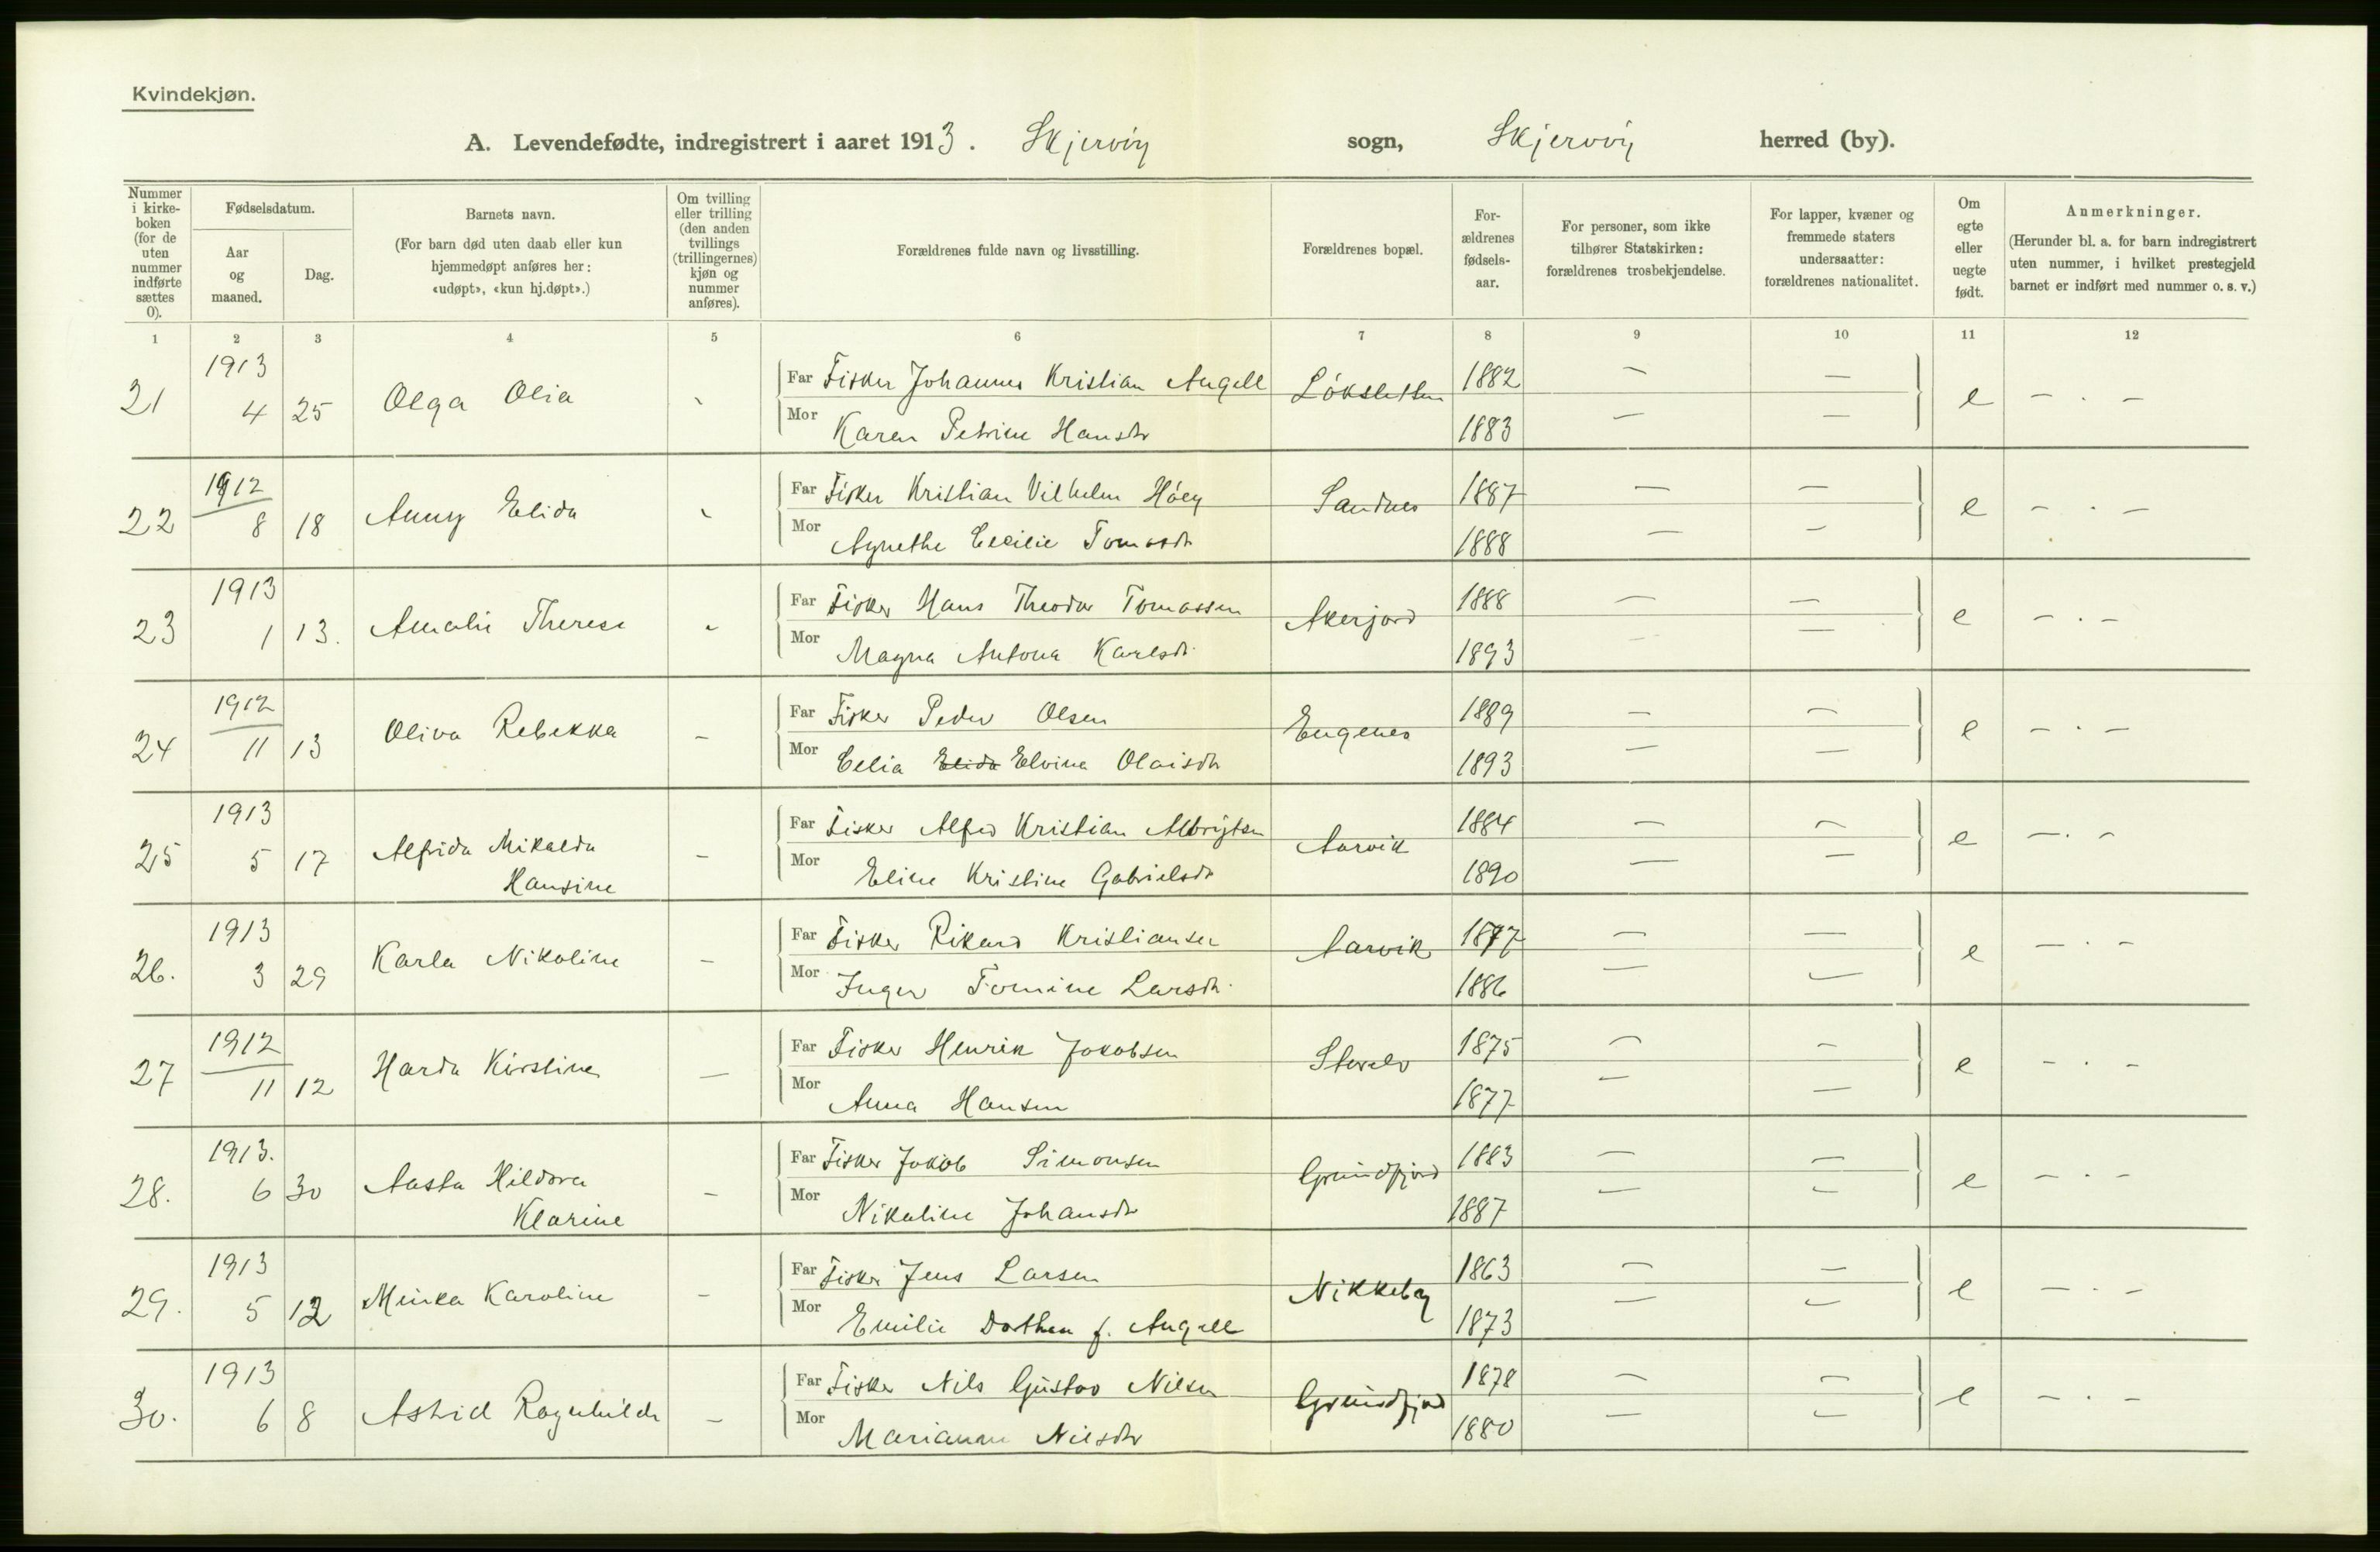 Kvindekjøn.
A. Levendefødte, indregistrert i aaret 1913. Skjervöy sogn, Skjervöy herred (by).
Nummer i kirkeboken (for de uten nummer indførte sættes 0).
Fødselsdatum.
Aar og maaned.
Dag.
Barnets navn.
(For barn død uten daab eller kun hjemmedøpt anføres her: «udøpt», «kun hj.døpt».)
Om tvilling eller trilling (den anden tvillings (trillingernes) kjøn og nummer anføres).
Forældrenes fulde navn og livsstilling.
Forældrenes bopæl.
Forældrenes fødselsaar.
For personer, som ikke tilhører Statskirken: forældrenes trosbekjendelse.
For lapper, kvæner og fremmede staters undersaatter: forældrenes nationalitet.
Om egte eller uegte født.
Anmerkninger.
(Herunder bl. a. for barn indregistrert uten nummer, i hvilket prestegjeld barnet er indført med nummer o. s. v.)
1 2 3 4 5 6 7 8 9 10 11 12
21 1913 4 25 Olga Olia - Far Fisker Johannes Kristian Angell Löksletten 1882 — — e - . -
Mor Karen Petrine Hansdtr 1883 — —
22 1912 8 18 Anny Elida - Far Fisker Kristian Vilhelm Höeg Sandnes 1887 — — e - . -
Mor Agnethe Cecilie Tomasdtr 1888 — —
23 1913 1 13. Amalie Therese - Far Fisker Hans Theodor Tomassen Akerjord 1888 — — e - . -
Mor Magna Antona Karlsdtr 1893 — —
24 1912 11 13 Oliva Rebekka - Far Fisker Peder Olsen Engenes 1889 — — e - . -
Mor Celia Elida Elvina Olaisdtr 1893 — —
25 1913 5 17 Alfrida Mikalda Hansine - Far Fisker Alfred Kristian Albrigtsen Aarvik 1884 — — e - . -
Mor Eline Kristine Gabrielsdtr 1890 — —
26. 1913 3 29 Karla Nikoline - Far Fisker Rikard Kristiansen Aarvik 1877 — — e - . -
Mor Inger Tomine Larsdtr 1886 — —
27 1912 11 12 Harda Kirstine - Far Fisker Henrik Jakobsen Storelv 1875 — — e - . -
Mor Anna Hansen 1877 — —
28. 1913. 6 30 Aasta Hildora Klarine - Far Fisker Jakob Simonsen Grundfjord 1883 — — e - . -
Mor Nikoline Johansdtr 1887 — —
29. 1913 5 12 Minka Karoline - Far Fisker Jens Larsen Nikkeby 1863 — — e - . -
Mor Emilie Dorthea f. Angell 1873 — —
30. 1913 6 8 Astrid Ragnhilda - Far Fisker Nils Gustav Nilsen Grundfjord 1878 — — e - . -
Mor Marianne Nilsdtr 1880 — —